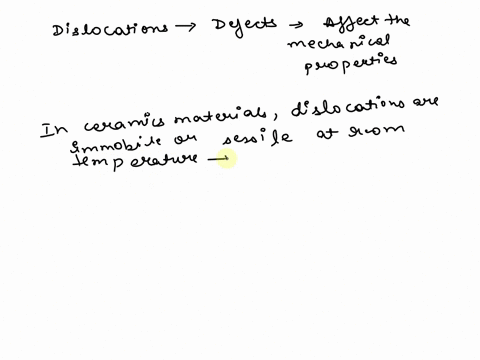 Dislocations → Defects → Affect the
mechanical
properties
In ceramics materials, dislocations are
immobile or sessile at room
temperature →